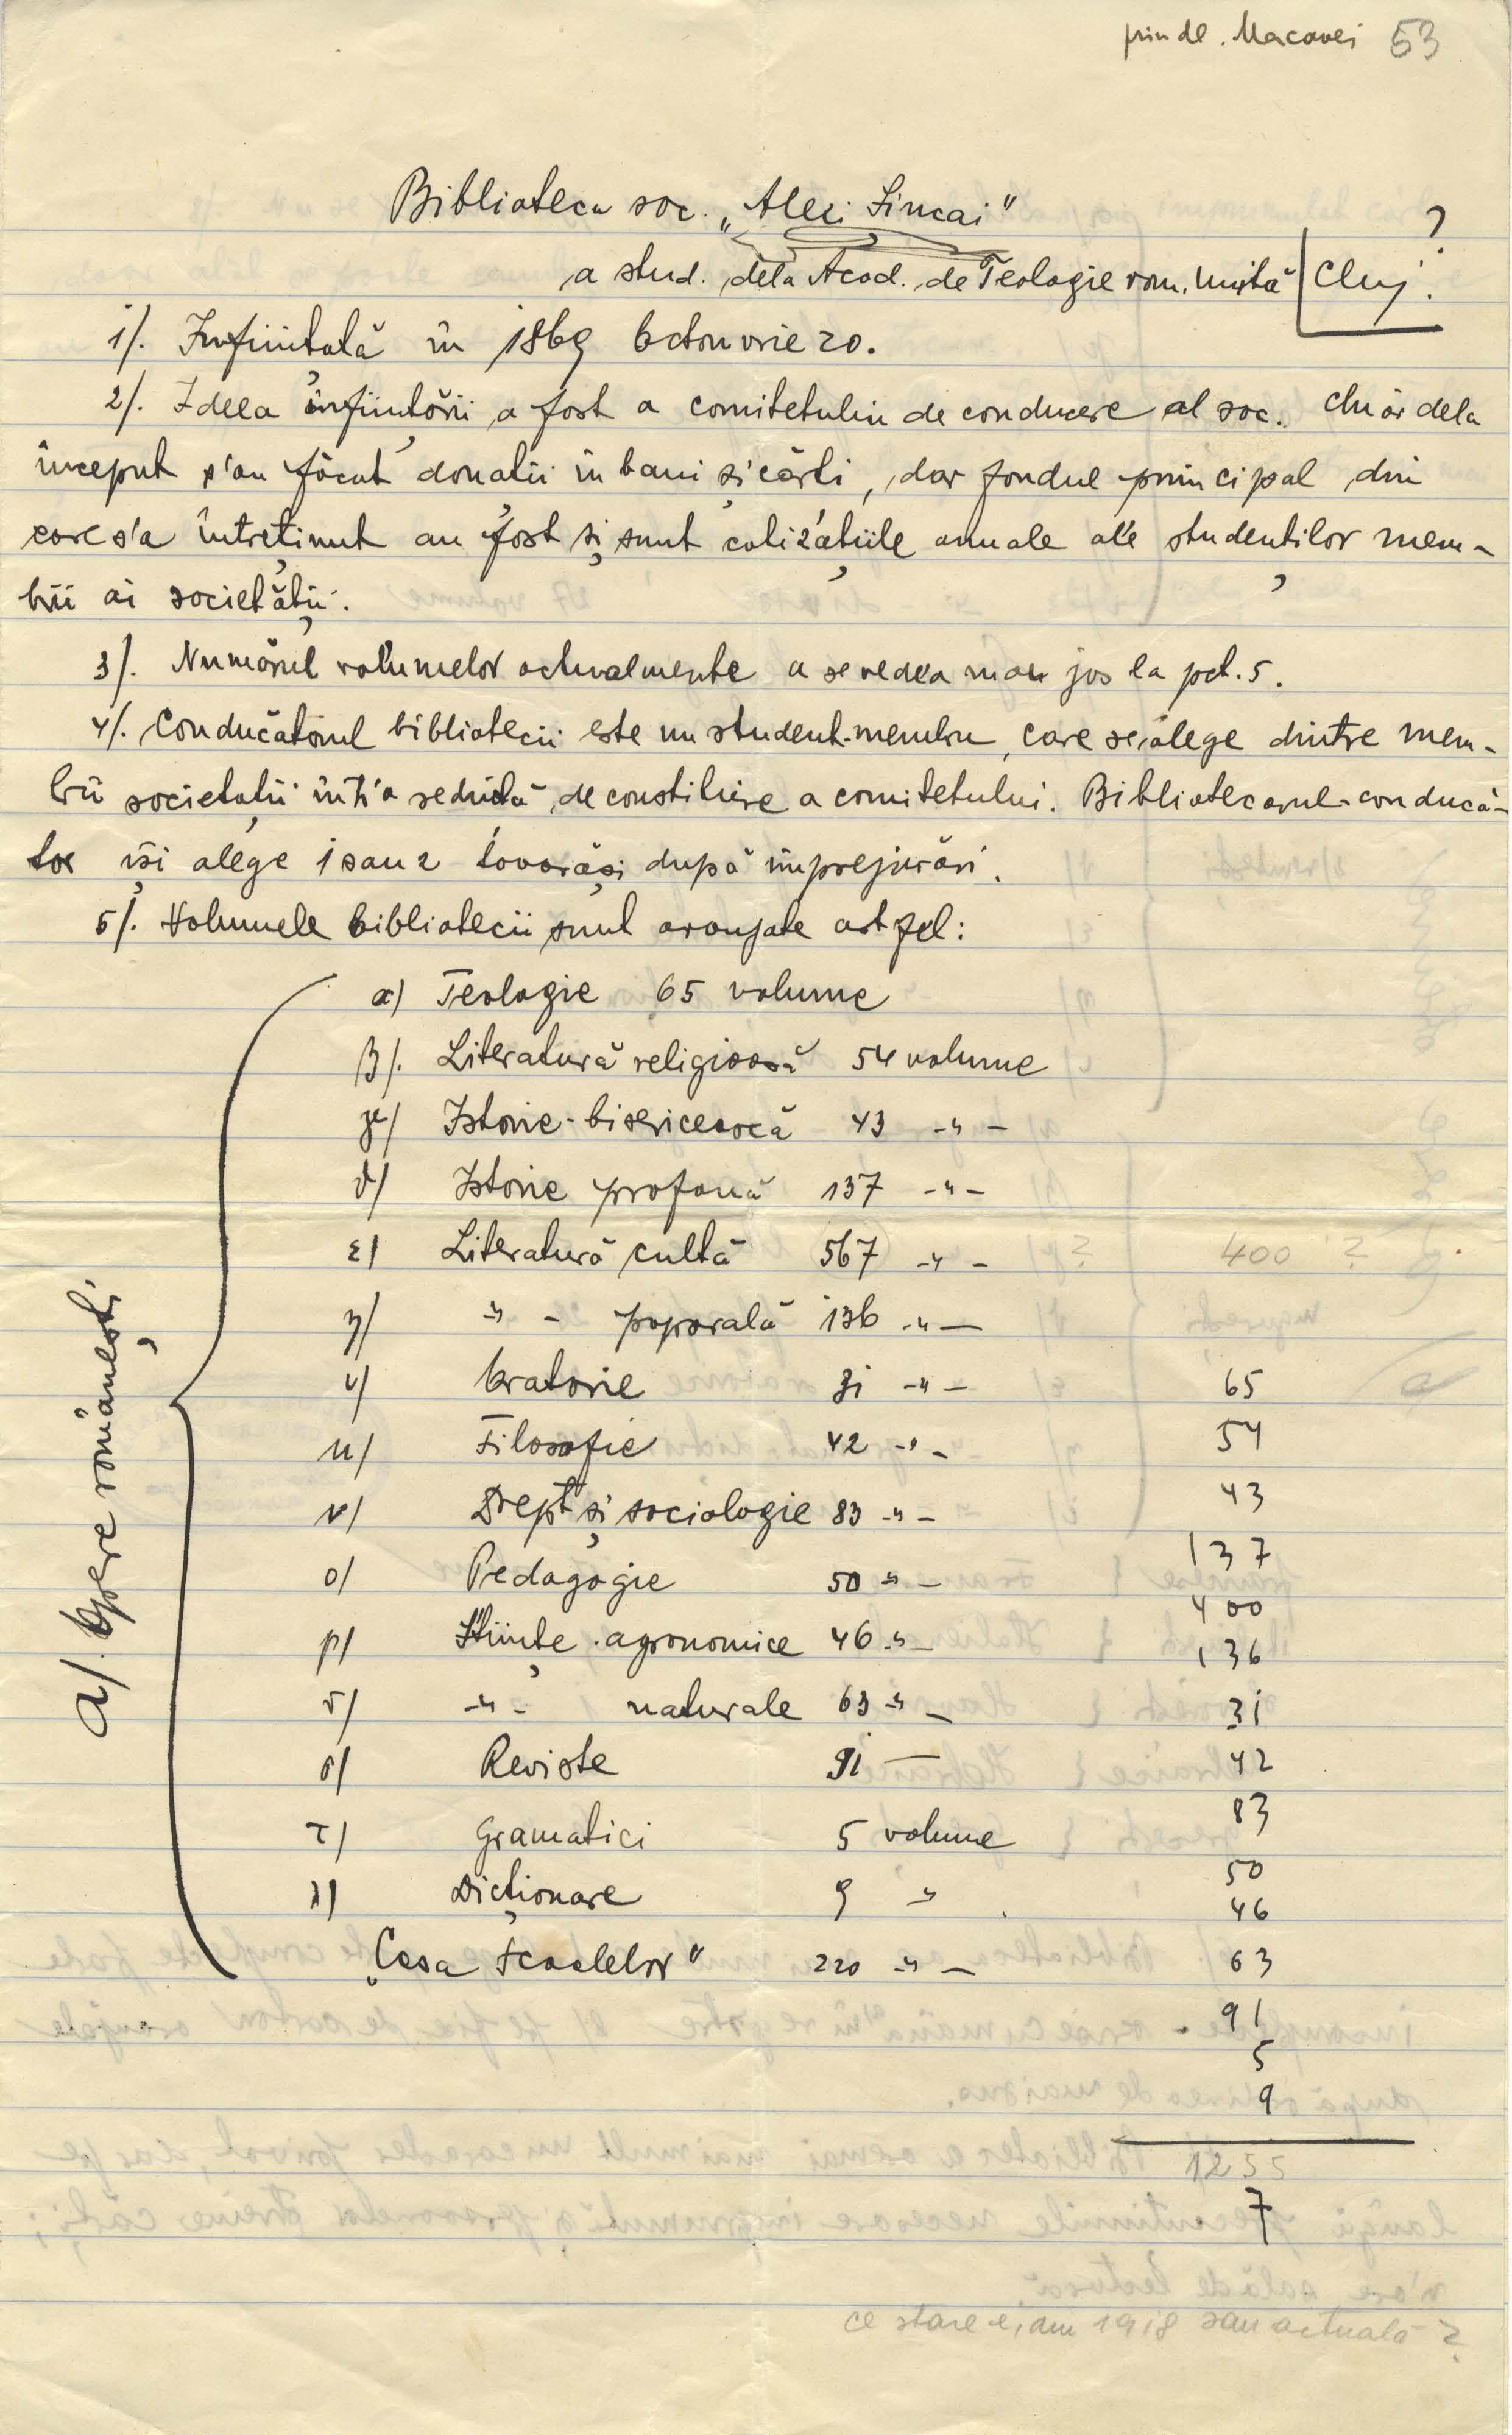 prin dl. Macavei 53
Biblioteca soc. „Alexi Sincai"
a stud. dela Acad. de Teologie rom. Unită Cluj. ?
1/. Înființată în 1869 Octomvrie 20.
2/. Ideea înființării a fost a comitetului de conducere al soc. chiar dela
început s'au făcut donații în bani și cărți, dar fondul principal din
care s'a întreținut au fost și sunt cotizațiile anuale ale studenților mem-
brii ai societății.
3/. Numărul volumelor actualmente a se vedea mai jos la pct. 5.
4/. Conducătorul bibliotecii este un student-membru, care se alege dintre mem-
brii societății în ș'a ședință de constituire a comitetului. Bibliotecarul-conducă-
tor își alege 1 sau 2 tovarăși după împrejurări.
5/. Volumele bibliotecii sunt aranjate astfel:
a/. Opere românești
α) Teologie 65 volume
β/. Literatură religioasă 54 volume
γ/ Istorie-bisericească 43 -"-
δ/ Istorie profană 137 -"-
ε/ Literatură cultă 567 -"- 400 ?
η/ -"- poporală 136 -"-
υ/ Oratorie 31 -"- 65
μ/ Filosofie 42 -"- 54
ν/ Drept și sociologie 83 -"- 43
ο/ Pedagogie 50 -"- 137
400
ρ/ Științe agronomice 46 -"- 136
r/ -"- naturale 63 -"- 31
σ/ Reviste 91 — 42
τ/ Gramatici 5 volume 83
λ/ Dicționare 9 " 50
46
„Casa Școalelor" 220 -"- 63
91
5
9
1255
7
ce stare e, din 1918 sau actuală ?